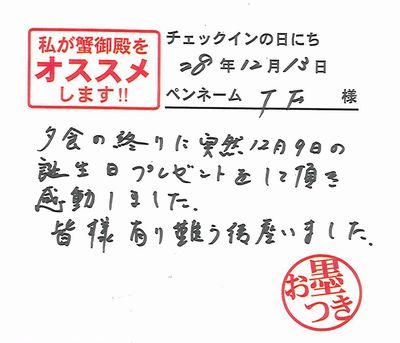 私が蟹御殿を
オススメ
します!!
チェックインの日にち
28年12月13日
ペンネーム TF 様
夕食の終りに突然12月9日の
誕生日プレゼントをして頂き
感動しました。
皆様有り難う御座いました。
お墨つき